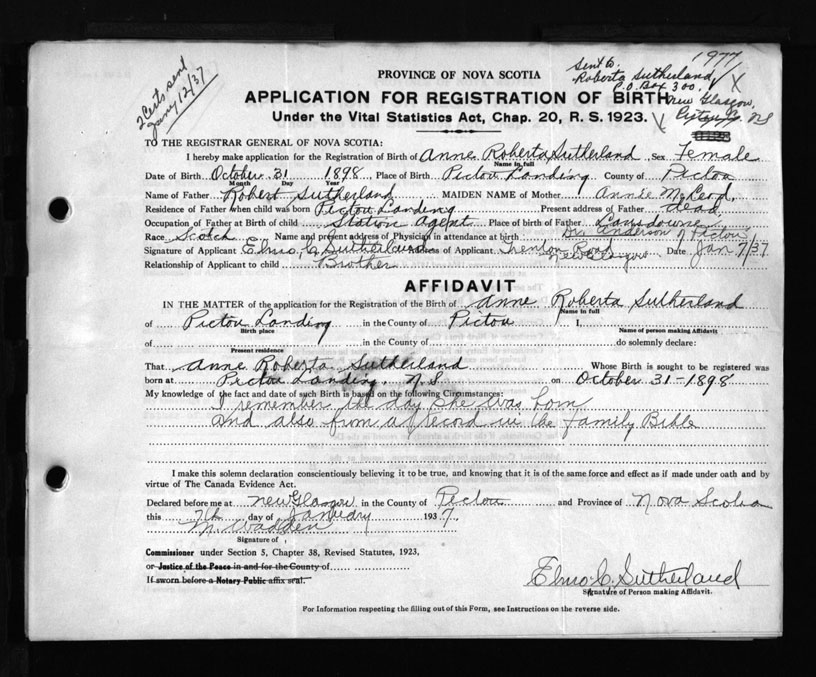 1977
2 Certs send
Jany 12/37
Sent to.
Roberta Sutherland,
P.O. Box 300.
New Glasgow,
Pictou Co. NS
PROVINCE OF NOVA SCOTIA
APPLICATION FOR REGISTRATION OF BIRTH
Under the Vital Statistics Act, Chap. 20, R. S. 1923.
TO THE REGISTRAR GENERAL OF NOVA SCOTIA:
I hereby make application for the Registration of Birth of Anne Roberta Sutherland Sex Female
Name in full
Date of Birth October 31 1898 Place of Birth Pictou Landing County of Pictou
Month Day Year
Name of Father Robert Sutherland MAIDEN NAME of Mother Annie McLeod.
Residence of Father when child was born Pictou Landing Present address of Father dead
Occupation of Father at Birth of child Station Agent Place of birth of Father Lansdowne
Race Scotch Name and present address of Physician in attendance at birth Dr. Anderson of Pictou
Signature of Applicant Elmo C Sutherland of Applicant Trenton Road New Glasgow Date Jan 7/37
Relationship of Applicant to child Brother
AFFIDAVIT
IN THE MATTER of the application for the Registration of the Birth of Anne Roberta Sutherland
Name in full
of Pictou Landing in the County of Pictou I,
Birth place Name of person making Affidavit
of in the County of do solemnly declare:
Present residence
That Anne Roberta Sutherland Whose Birth is sought to be registered was
born at Pictou Landing. N.S. on October 31-1898
My knowledge of the fact and date of such Birth is based on the following Circumstances:
I remember the day she was born
and also from a record in the family Bible
I make this solemn declaration conscientiously believing it to be true, and knowing that it is of the same force and effect as if made under oath and by
virtue of The Canada Evidence Act.
Declared before me at New Glasgow in the County of Pictou and Province of Nova Scotia
this 7th day of January 1937.
M. Wadden
Signature of
Commissioner under Section 5, Chapter 38, Revised Statutes, 1923,
or Justice of the Peace in and for the County of
If sworn before a Notary Public affix seal.
Elmo C. Sutherland
Signature of Person making Affidavit.
For Information respecting the filling out of this Form, see Instructions on the reverse side.